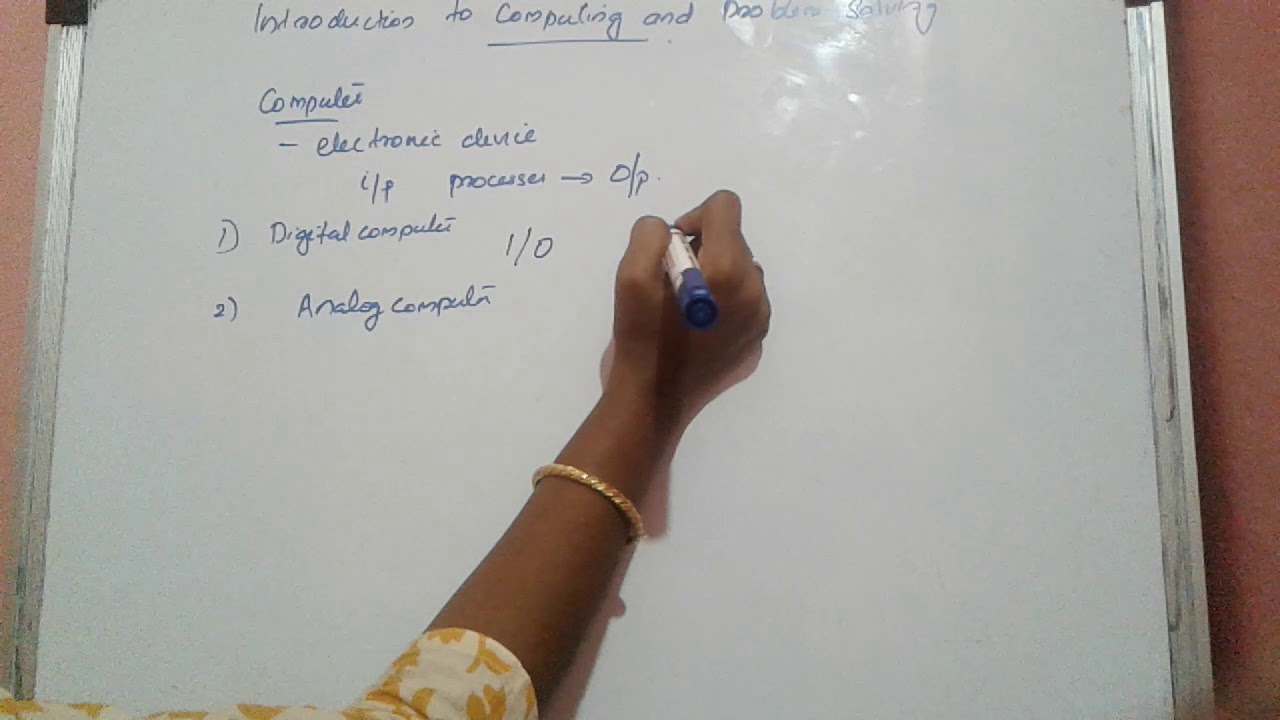 Introduction to Computing and Problem Solving
Computer
- electronic device
i/p processes → O/p.
1) Digital computer 1/0
2) Analog computer